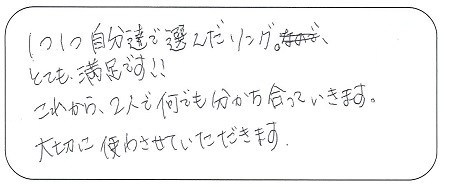 1つ1つ自分達で選んだリング。
とても、満足です!!
これから、2人で何でも分かち合っていきます。
大切に使わさせていただきます.